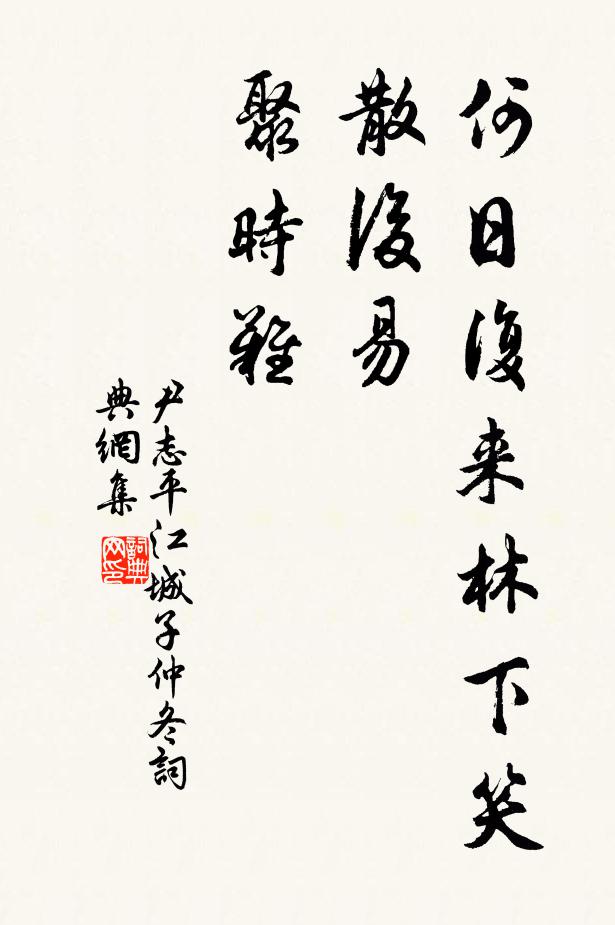 何日復来林下笑
散復易
聚時難
尹志平江城子仲冬詞
典網集
詞典
网印